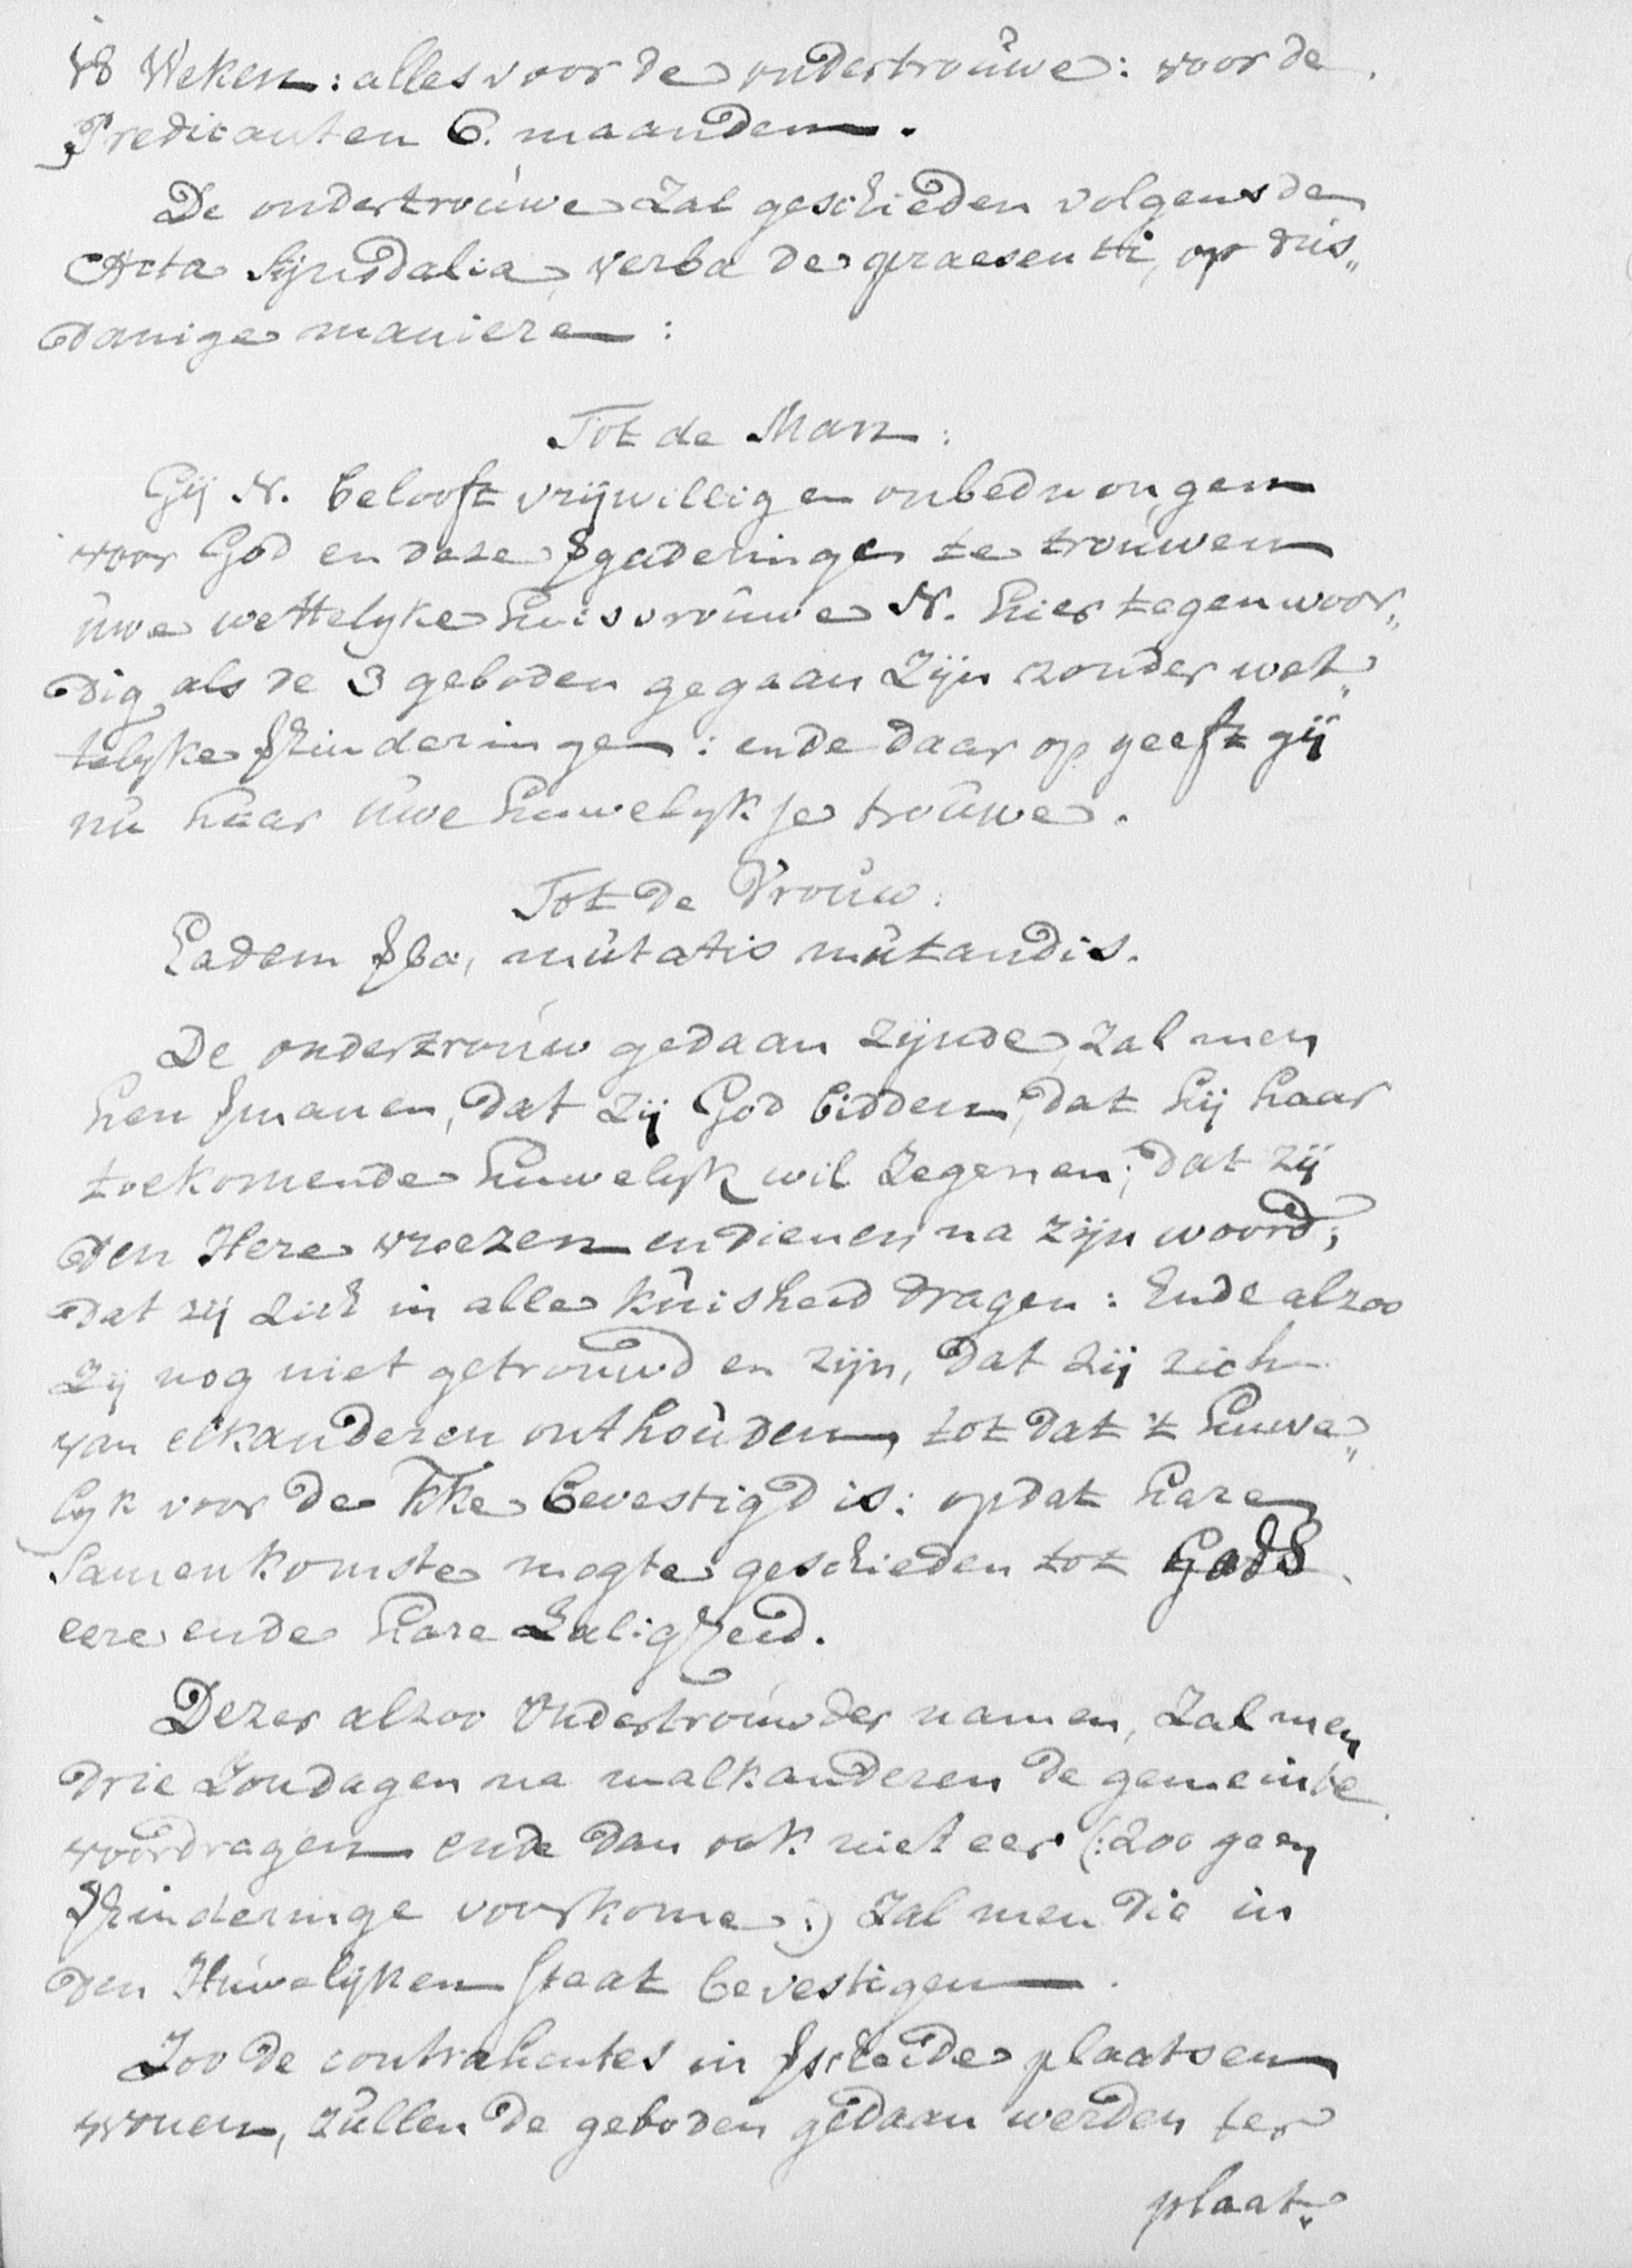 18 Weken: alles voor de ondertrouwe: voor de
Predicanten 6. maanden.
De ondertrouwe zal geschieden volgens de
Acta Synodalia, verba de praesenti, op dus„
danige maniere:
Tot de Man:
Gij N. belooft vrijwillig en onbedwongen
voor God en deze vgaderinge te trouwen
uwe wettelyke huisvrouwe N. hier tegenwoor„
dig, als de 3 geboden gegaan zijn zonder wet„
telyke vhinderingen: ende daar op geeft gij
nu haar uwe huwelykse trouwe.
Tot de Vrouw:
Eadem vba, mutatis mutandis.
De ondertrouw gedaan zijnde, zal men
hen vmanen, dat zij God bidden, dat hij haar
toekomende huwelyk wil zegenen; dat zij
den Here vrezen en dienen na zijn woord;
dat zij zich in alle kuisheid dragen: Ende alzoo
zij nog niet getrouwd en zijn, dat zij zich
van elkanderen onthouden, tot dat 't huwe„
lyk voor de kke bevestigd is: opdat hare
samenkomste mogte geschieden tot Gods
eere ende hare zaligheid.
Dezer alzoo Ondertrouwder namen, zal men
drie zondagen na malkanderen de gemeinte
voordragen ende dan ook niet eer (: zoo geen
vhinderinge voorkome :) zal men die in
den Huwelijken staat bevestigen.
Zoo de contrahentes in vscheide plaatsen
wonen, zullen de geboden gedaan werden ter
plaat„